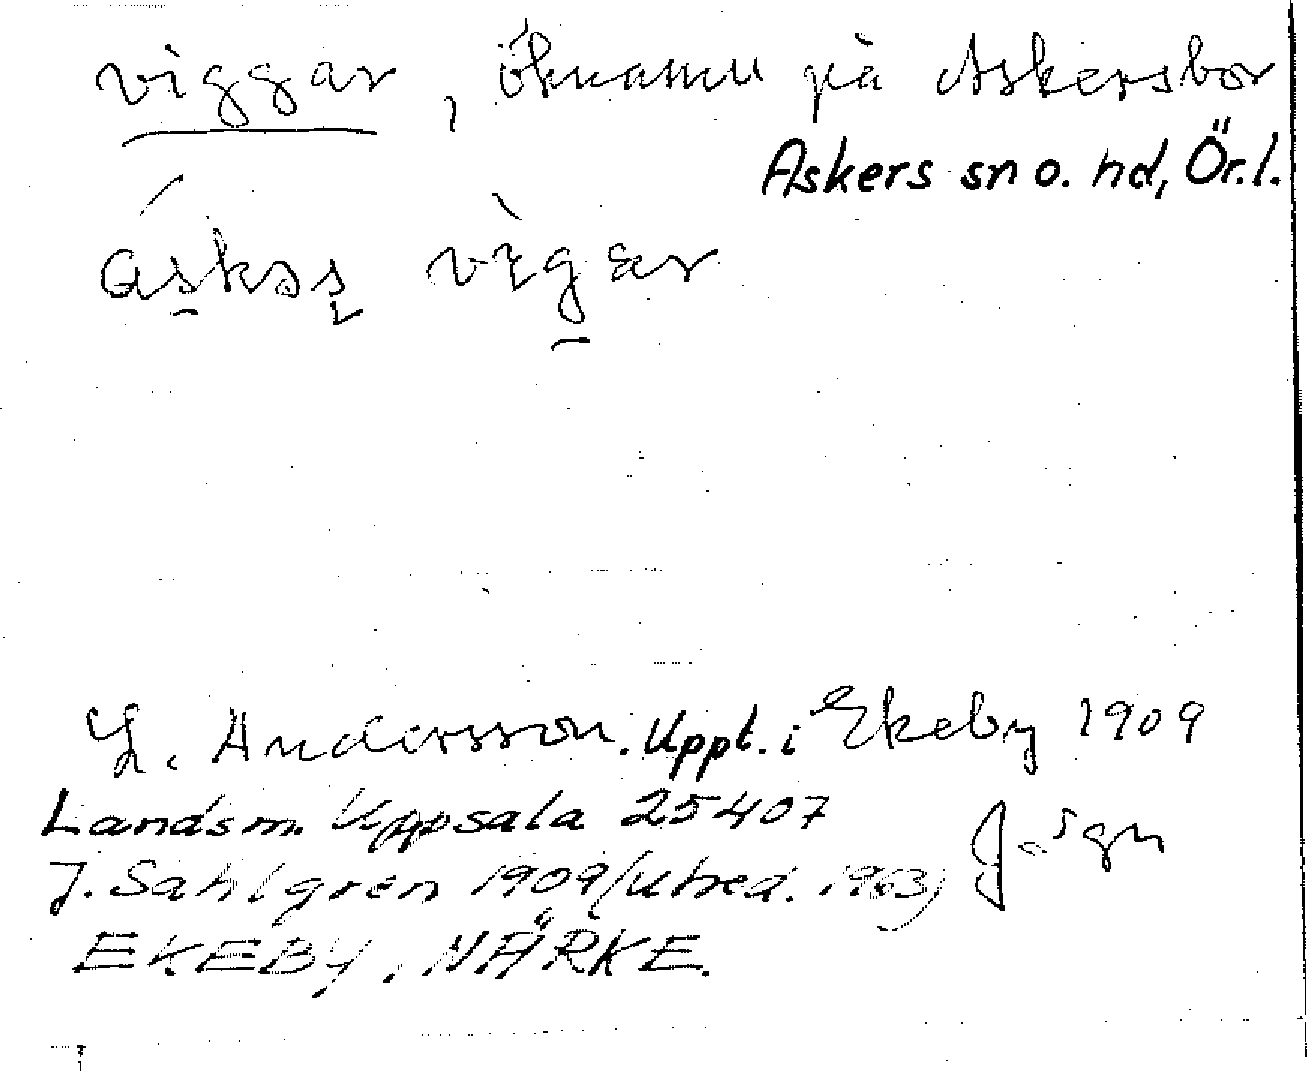 viggar, öknamn på Askersbor
Askers sn o. hd, Ör.l.
áskəs vìgar
L. Andersson. Uppt. i Ekeby 1909
Landsm. Uppsala 25407
J. Sahlgren 1909 (utred. 1963)
EKEBY, NÄRKE.